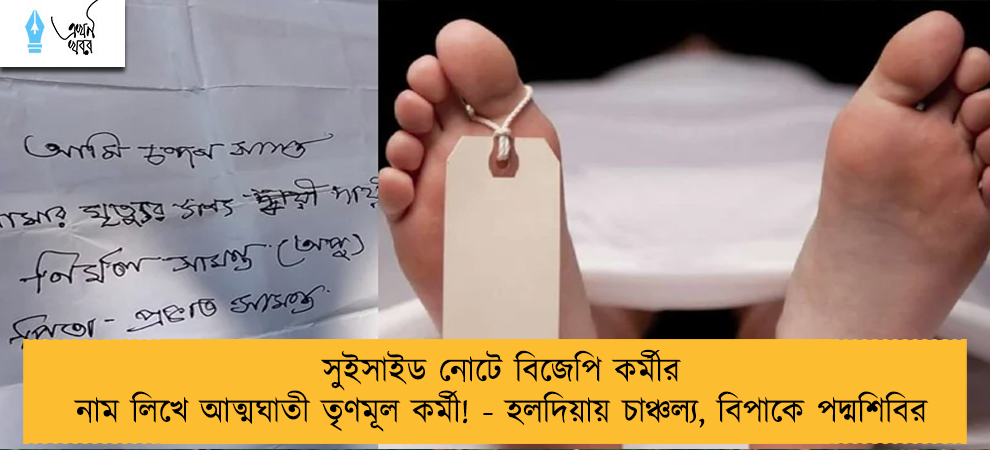 এখন
খবর
আমি চন্দন সামন্ত
আমার মৃত্যুর জন্য দায়ী
নির্মল সামন্ত (অপু)
পিতা - প্রভাত সামন্ত
সুইসাইড নোটে বিজেপি কর্মীর
নাম লিখে আত্মঘাতী তৃণমূল কর্মী! - হলদিয়ায় চাঞ্চল্য, বিপাকে পদ্মশিবির